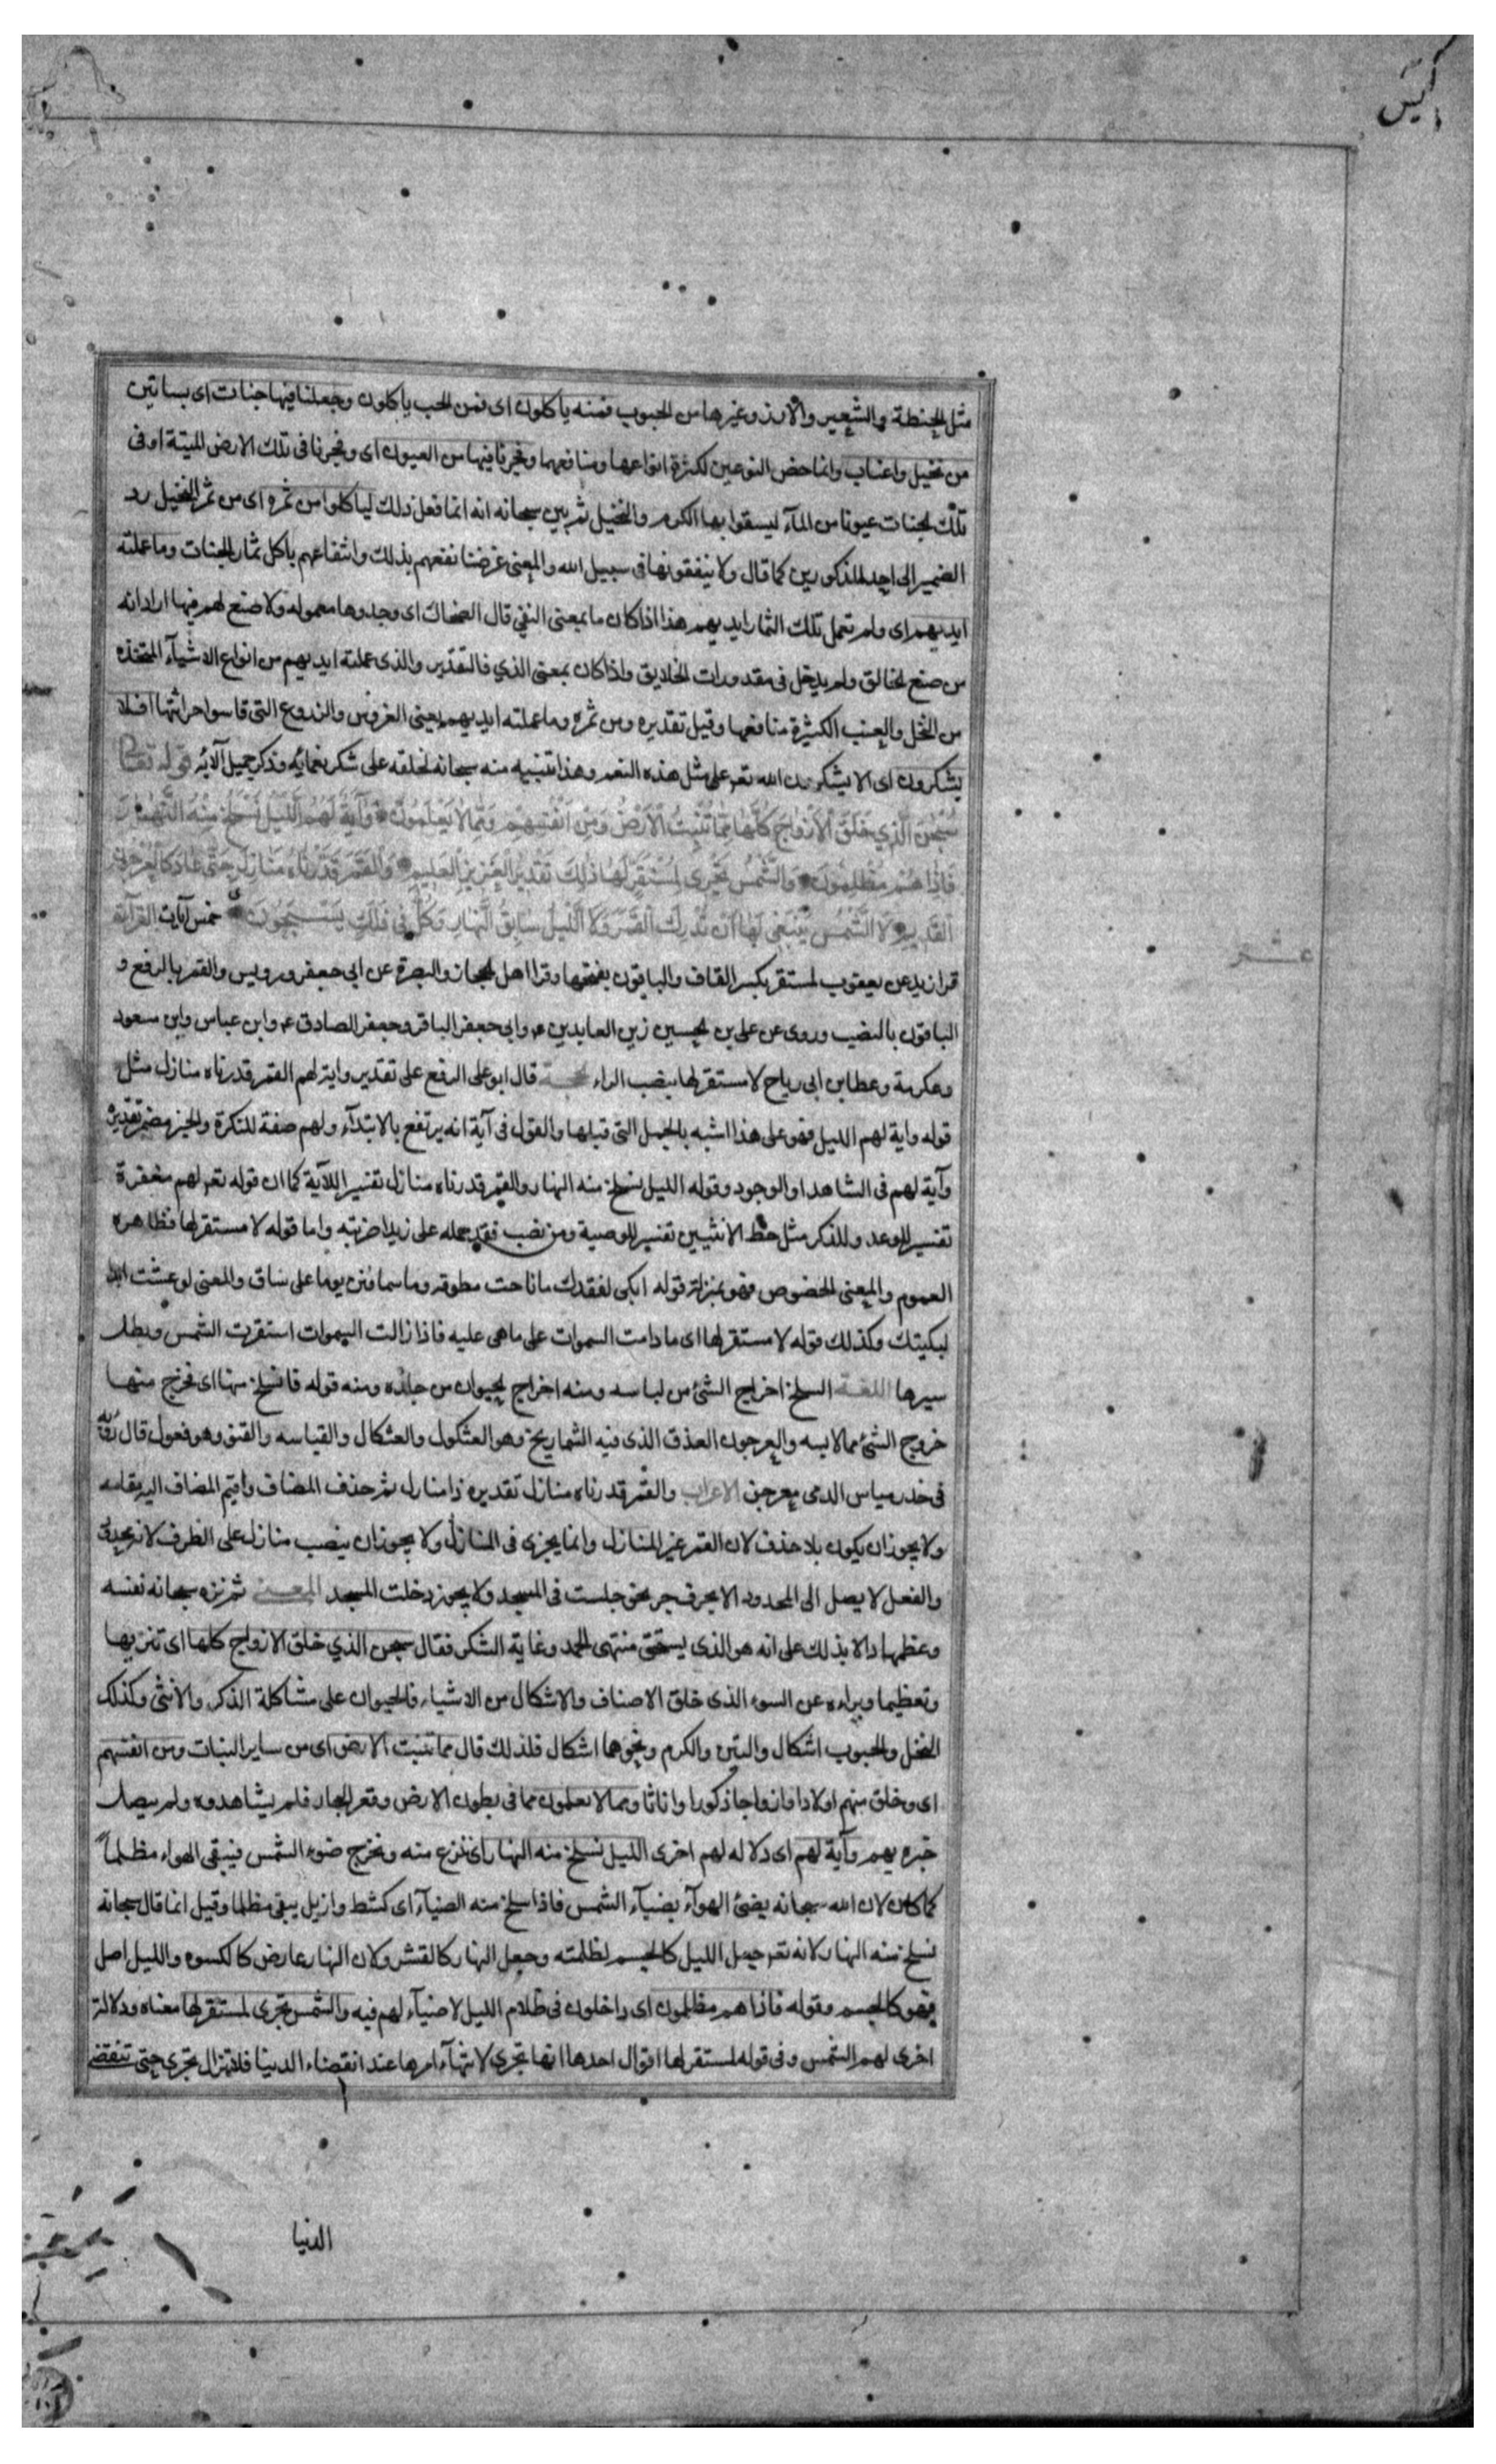 مثل الحنطة والشعير والارز وغيرها من الحبوب فمنه ياكلون اى فمن الحب ياكلون وجعلنا فيها جنات اى بساتين
من نخيل واعناب وانما خص النوعين لكثرة انواعهما ومنافعهما وفجرنا فيها من العيون اى وفجرنا فى تلك الارض الميتة او فى
تلك الجنات عيونا من المآء ليسقوا بها الكرم والنخيل ثم بين سبحانه انه انما فعل ذلك لياكلوا من ثمره اى من ثمر النخيل رد
الضمير الى احد المذكورين كما قال ولا ينفقونها فى سبيل الله والمعنى غرضنا نفعهم بذلك وانتفاعهم باكل ثمار الجنات وما عملته
ايديهم اى ولم تعمل تلك الثمار ايديهم هذا اذا كان ما بمعنى النفي قال الضحاك اى وجدوها معموله ولا صنع لهم فيها اراد انه
من صنع الخالق ولم يدخل فى مقدورات الخلايق واذا كان بمعنى الذي فالتقدير والذى عملته ايديهم من انواع الاشيآء المتخذه
من النخل والعنب الكثيرة منافعها وقيل تقديره ومن ثمره وما عملته ايديهم يعنى الغروس والزروع التى قاسوا حراثتها افلا
يشكرون اى الا يشكرون الله تعم على مثل هذه النعم وهذا تنبيه منه سبحانه لخلقه على شكر نعمائه وذكر جميل آلائه قوله تعالى
سُبْحٰنَ الَّذِي خَلَقَ الْاَزْواجَ كُلَّهَا مِمَّا تُنْبِتُ الْاَرْضُ وَمِنْ اَنْفُسِهِمْ وَمِمَّا لَا يَعْلَمُونَ وَآيَةٌ لَهُمُ اللَّيْلُ نَسْلَخُ مِنْهُ النَّهَارَ
فَاِذَا هُمْ مُظْلِمُونَ وَالشَّمْسُ تَجْرِى لِمُسْتَقَرٍّ لَهَا ذٰلِكَ تَقْدِيرُ الْعَزِيزِ الْعَلِيمِ وَالْقَمَرَ قَدَّرْنَاهُ مَنَازِلَ حَتّٰى عَادَ كَالْعُرْجُونِ
الْقَدِيمِ لَا الشَّمْسُ يَنْبَغِى لَهَا اَنْ تُدْرِكَ الْقَمَرَ وَلَا اللَّيْلُ سَابِقُ النَّهَارِ وَكُلٌّ فِى فَلَكٍ يَسْبَحُونَ خمس آيات القرآءة
قرا زيد عن يعقوب لمستقر بكسر القاف والباقون بفتحها وقرا اهل الحجاز والبصرة عن ابى جعفر ورويس والقمر بالرفع و
الباقون بالنصب وروى عن على بن الحسين زين العابدين ع وابى جعفر الباقر وجعفر الصادق ع وابن عباس وابن مسعود
وعكرمة وعطا بن ابى رباح لا مستقر لها بنصب الراء الحجة قال ابو على الرفع على تقدير واية لهم القمر قدرناه منازل مثل
قوله واية لهم الليل فهو على هذا اشبه بالجمل التى قبلها والقول فى آية انه يرتفع بالابتدآء ولهم صفة للنكرة والخبر مضمر تقديره
وآية لهم فى الشاهد او الوجود وقوله الليل نسلخ منه النهار والقمر قدرناه منازل تفسير للآية كما ان قوله تعم لهم مغفرة
تفسير للوعد وللذكر مثل حظ الانثيين تفسير للوصية ومن نصب فقد حمله على زيدا ضربته واما قوله لا مستقر لها فظاهره
العموم والمعنى الخصوص فهو بمنزلة قوله ابكى لفقدك ما ناحت مطوقة وما سما فنن يوما على ساق والمعنى لو عشت ابدا
لبكيتك وكذلك قوله لا مستقر لها اى ما دامت السموات على ما هى عليه فاذا زالت السموات استقرت الشمس وبطل
سيرها اللغـة السلخ اخراج الشئ من لباسه ومنه اخراج الحيوان من جلده ومنه قوله فانسلخ منها اى فخرج منها
خروج الشئ مما لابسه والعرجون العذق الذى فيه الشماريخ وهو العثكول والعثكال والقباسه والقنو وهو فعول قال رؤبة
فى خدر مياس الدمى معرجن الاعراب والقمر قدرناه منازل تقديره ذا منازل ثم حذف المضاف واقيم المضاف اليه مقامه
ولا يجوز ان يكون بلا حذف لان القمر غير المنازل وانما يجرى فى المنازل ولا يجوز ان ينصب منازل على الظرف لانه محدود
والفعل لا يصل الى المحدود الا بحرف جر نحو جلست فى المسجد ولا يجوز دخلت المسجد المعـنى ثم نزه سبحانه نفسه
وعظمها دالا بذلك على انه هو الذى يستحق منتهى الحمد وغاية الشكر فقال سبحن الذي خلق الازواج كلها اى تنزيها
وتعظيما وبراءه عن السوء الذى خلق الاصناف والاشكال من الاشياء فالحيوان على مشاكلة الذكر والانثى وكذلك
النخل والحبوب اشكال والتين والكرم ونحوهما اشكال فلذلك قال مما تنبت الارض اى من ساير النبات ومن انفسهم
اى وخلق منهم اولادا وازواجا ذكورا واناثا ومما لا يعلمون مما فى بطون الارض وقعر البحار فلم يشاهدوه ولم يصل
خبره بهم وآية لهم اى دلاله لهم اخرى الليل نسلخ منه النهار اى ننزع منه ونخرج ضوء الشمس فيبقى الهواء مظلماً
كما كان لان الله سبحانه يضئ الهوآء بضيآء الشمس فاذا سلخ منه الضيآء اى كشط وازيل يبقى مظلما وقيل انما قال سبحانه
نسلخ منه النهار لانه تعم جعل الليل كالجسم لظلمته وجعل النهار كالقشر ولان النهار عارض كالكسوه والليل اصل
فهو كالجسم وقوله فاذا هم مظلمون اى داخلون فى ظلام الليل لا ضيآء لهم فيه والشمس تجرى لمستقر لها معناه ودلالة
اخرى لهم الشمس وفى قوله لمستقر لها اقوال احدها انها تجرى لانتهآء امرها عند انقضاء الدنيا فلا تزال تجرى حتى تنقضى
الدنيا
عشر